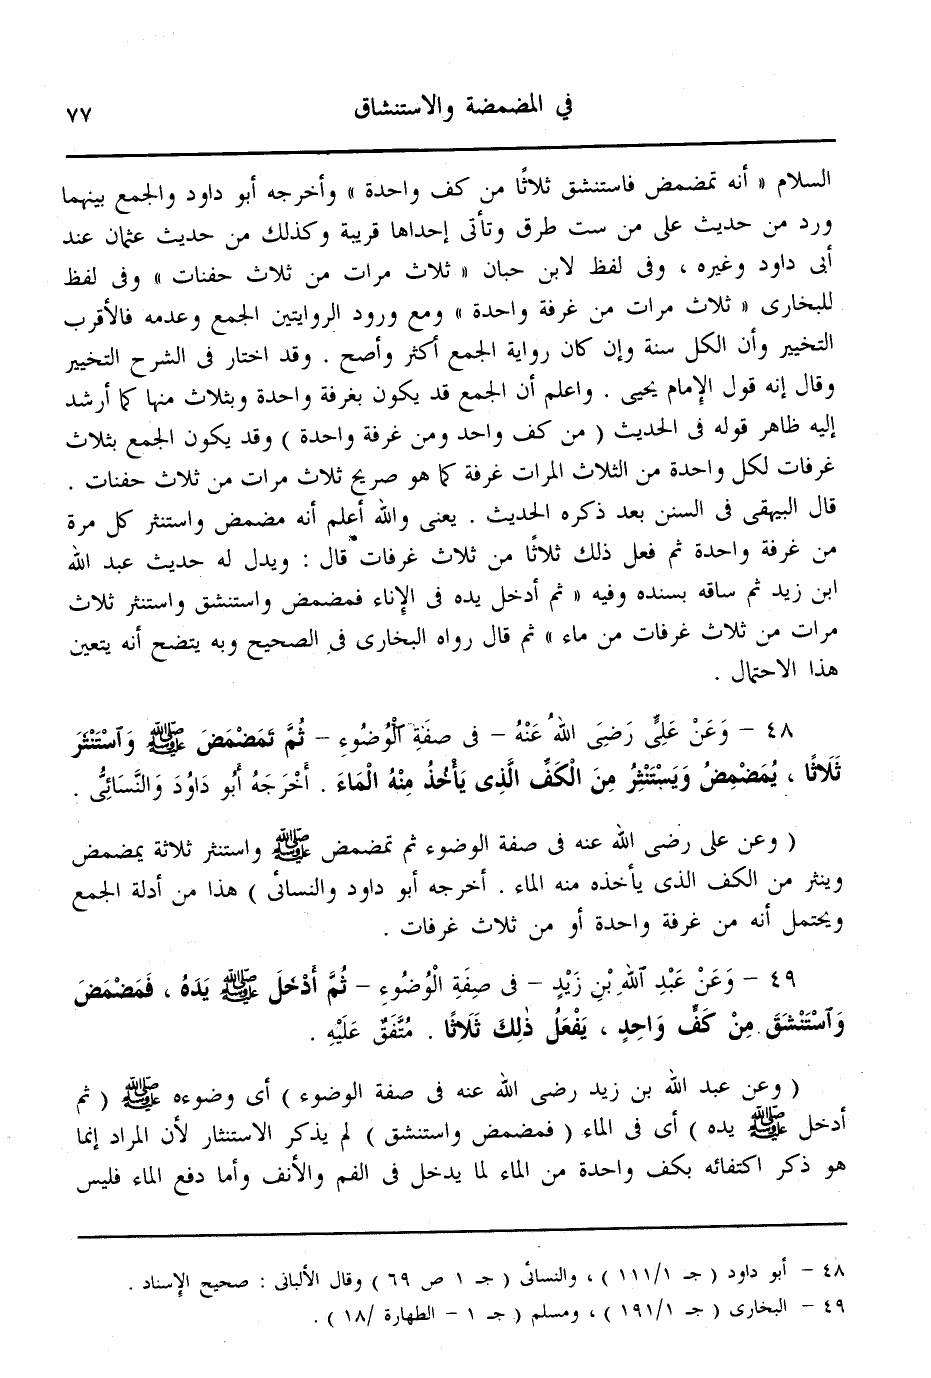 في المضمضة والاستنشاق ٧٧
السلام « أنه تمضمض فاستنشق ثلاثًا من كف واحدة » وأخرجه أبو داود والجمع بينهما
ورد من حديث على من ست طرق وتأتى إحداها قريبة وكذلك من حديث عثمان عند
أبى داود وغيره ، وفى لفظ لابن حبان « ثلاث مرات من ثلاث حفنات » وفى لفظ
للبخارى « ثلاث مرات من غرفة واحدة » ومع ورود الروايتين الجمع وعدمه فالأقرب
التخيير وأن الكل سنة وإن كان رواية الجمع أكثر وأصح . وقد اختار فى الشرح التخيير
وقال إنه قول الإمام يحيى . واعلم أن الجمع قد يكون بغرفة واحدة وبثلاث منها كما أرشد
إليه ظاهر قوله فى الحديث ( من كف واحد ومن غرفة واحدة ) وقد يكون الجمع بثلاث
غرفات لكل واحدة من الثلاث المرات غرفة كما هو صريح ثلاث مرات من ثلاث حفنات .
قال البيهقى فى السنن بعد ذكره الحديث . يعنى والله أعلم أنه مضمض واستنثر كل مرة
من غرفة واحدة ثم فعل ذلك ثلاثًا من ثلاث غرفات قال : ويدل له حديث عبد الله
ابن زيد ثم ساقه بسنده وفيه « ثم أدخل يده فى الإناء فمضمض واستنشق واستنثر ثلاث
مرات من ثلاث غرفات من ماء » ثم قال رواه البخارى فى الصحيح وبه يتضح أنه يتعين
هذا الاحتمال .
٤٨ – وَعَنْ عَلِيٍّ رَضِيَ اللهُ عَنْهُ – فى صِفَةِ الْوُضُوءِ – ثُمَّ تَمَضْمَضَ ﷺ وَاسْتَنْثَرَ
ثَلَاثًا ، يُمَضْمِضُ وَيَسْتَنْثِرُ مِنَ الْكَفِّ الَّذِى يَأْخُذُ مِنْهُ الْمَاءَ . أَخْرَجَهُ أَبُو دَاوُدَ وَالنَّسَائِىُّ .
( وعن على رضى الله عنه فى صفة الوضوء ثم تمضمض ﷺ واستنثر ثلاثة يمضمض
وينثر من الكف الذى يأخذه منه الماء . أخرجه أبو داود والنسائى ) هذا من أدلة الجمع
ويحتمل أنه من غرفة واحدة أو من ثلاث غرفات .
٤٩ – وَعَنْ عَبْدِ اللهِ بْنِ زَيْدٍ – فى صِفَةِ الْوُضُوءِ – ثُمَّ أَدْخَلَ ﷺ يَدَهُ ، فَمَضْمَضَ
وَاسْتَنْشَقَ مِنْ كَفٍّ وَاحِدٍ ، يَفْعَلُ ذٰلِكَ ثَلَاثًا . مُتَّفَقٌ عَلَيْهِ .
( وعن عبد الله بن زيد رضى الله عنه فى صفة الوضوء ) أى وضوءه ﷺ ( ثم
أدخل ﷺ يده ) أى فى الماء ( فمضمض واستنشق ) لم يذكر الاستنثار لأن المراد إنما
هو ذكر اكتفائه بكف واحدة من الماء لما يدخل فى الفم والأنف وأما دفع الماء فليس
٤٨ – أبو داود ( جـ ١١١/١ ) ، والنسائى ( جـ ١ ص ٦٩ ) وقال الألبانى : صحيح الإسناد .
٤٩ – البخارى ( جـ ١٩١/١ ) ، ومسلم ( جـ ١ – الطهارة /١٨ ) .